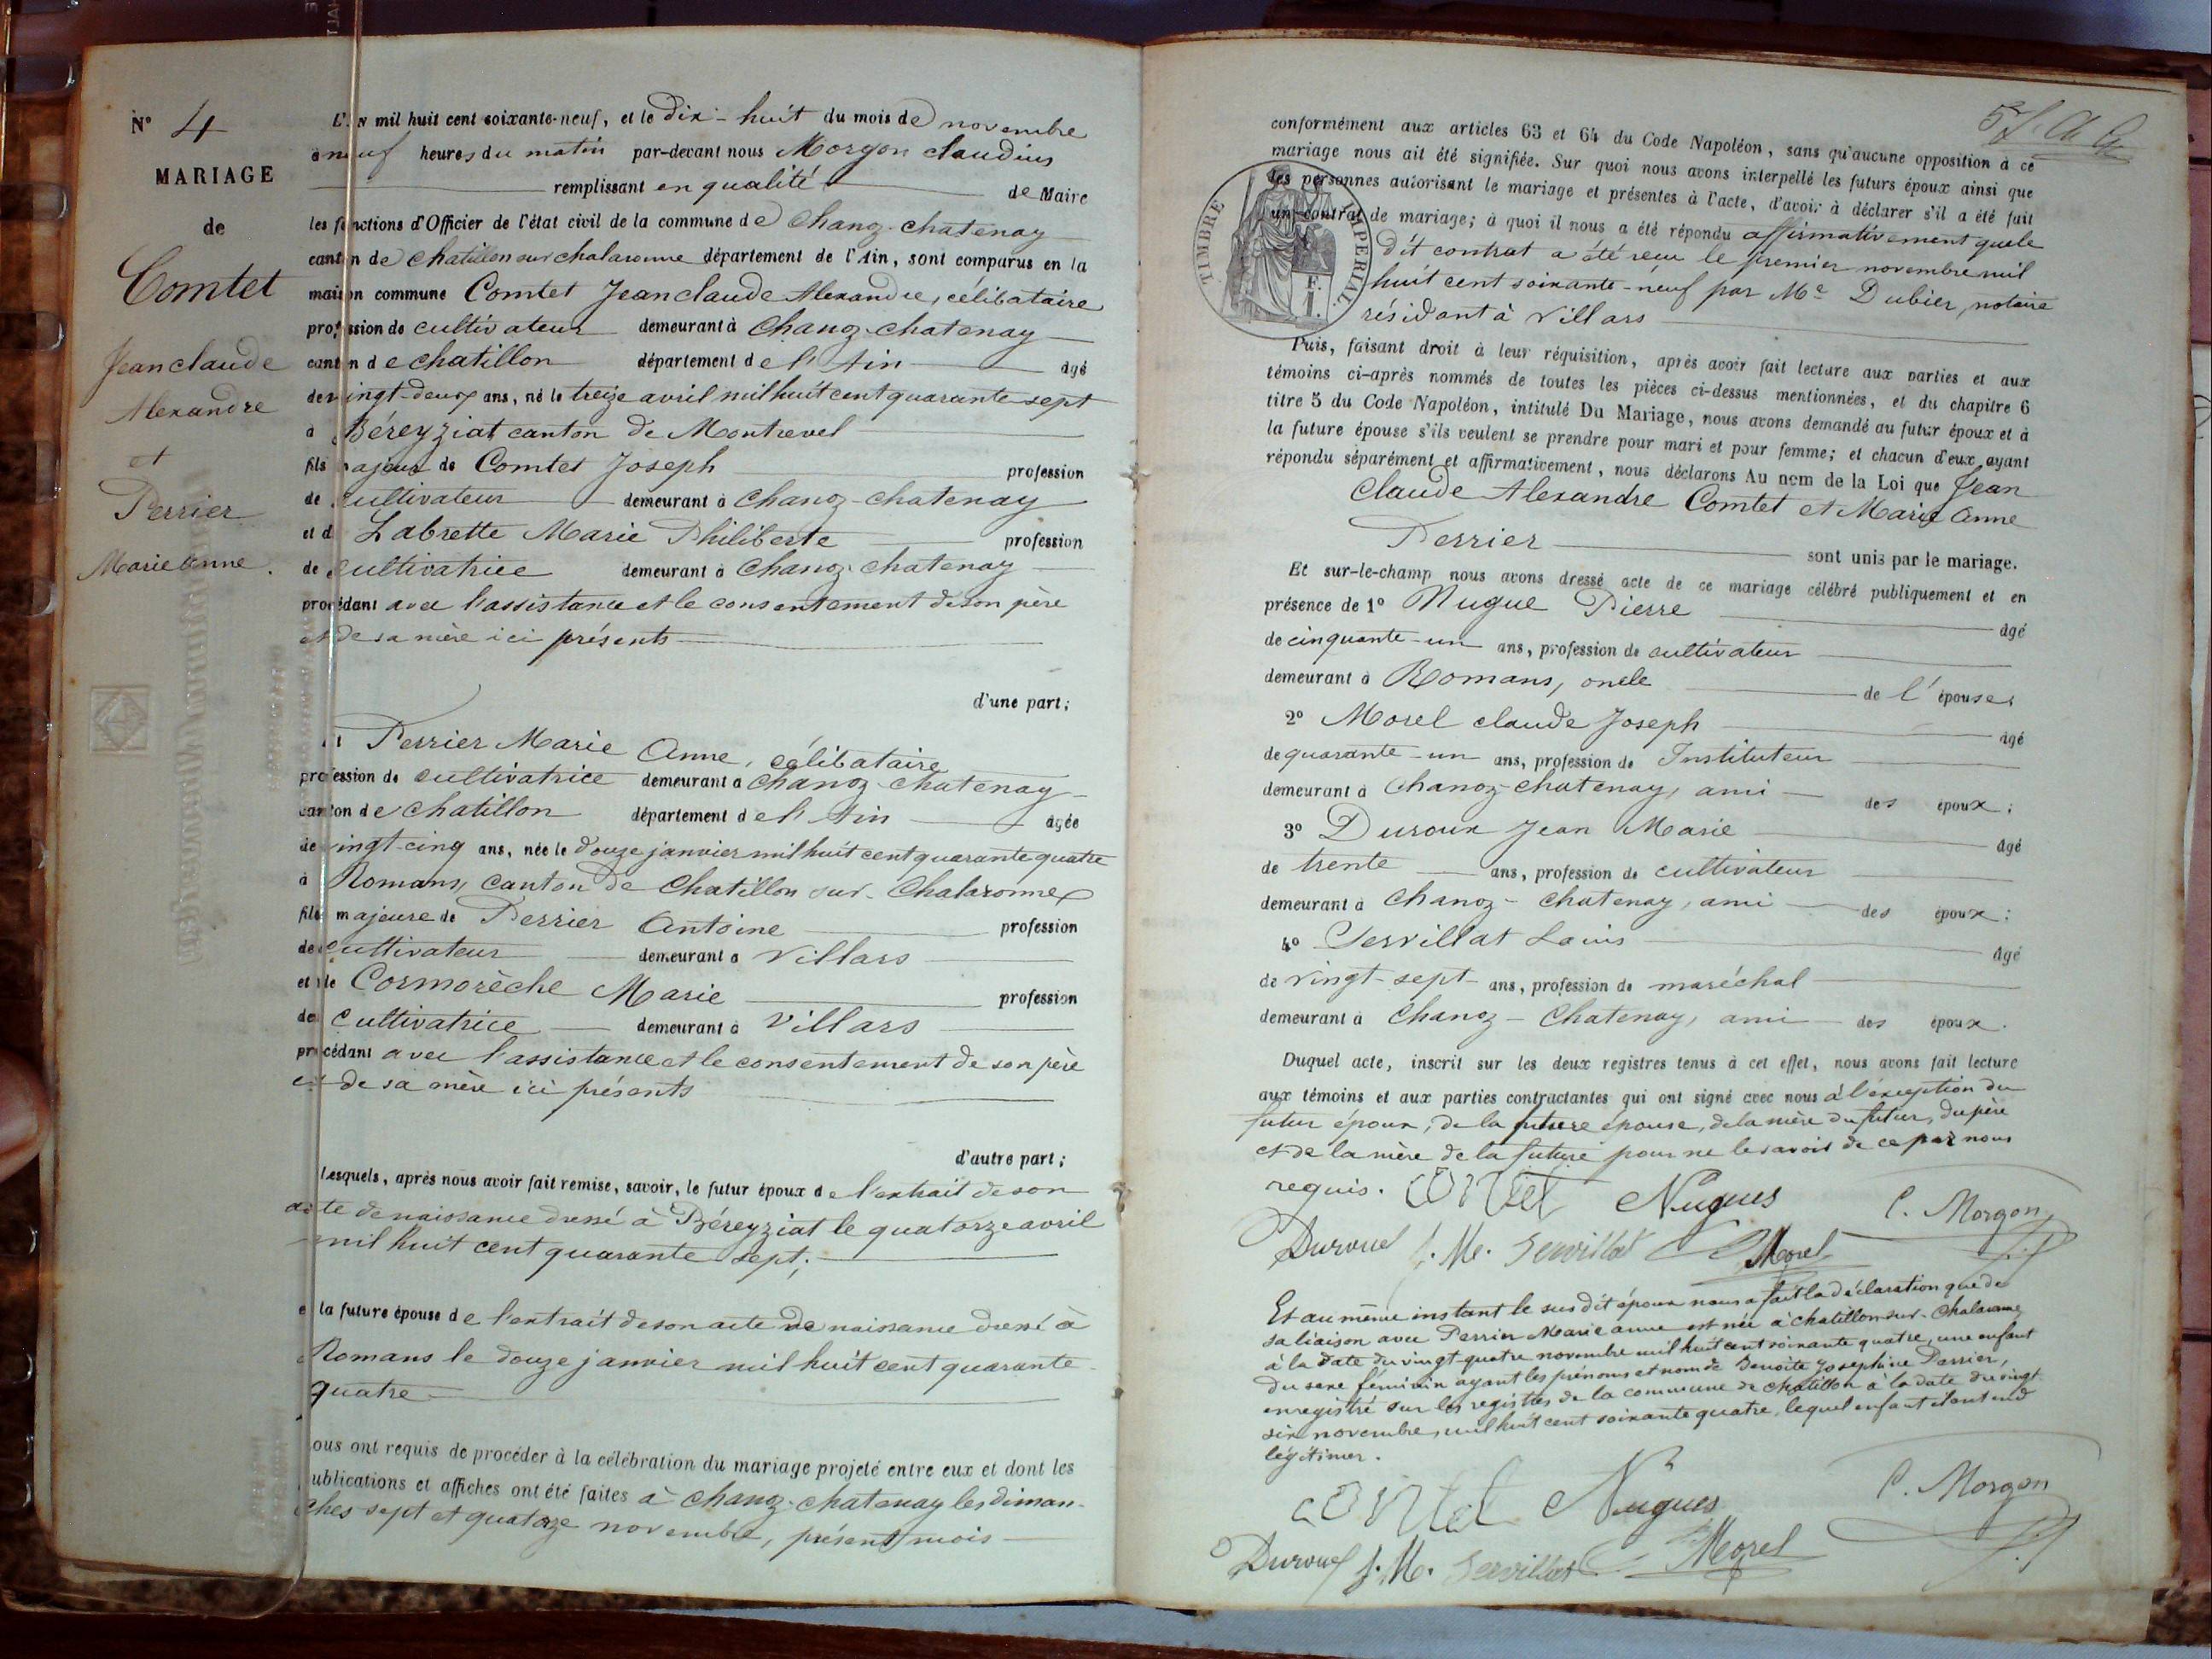 N° 4
MARIAGE
de
Comtet
Jean claude
Alexandre
et
Perrier
Marie anne.
L'an mil huit cent soixante-neuf, et le dix-huit du mois de novembre
à neuf heures du matin par-devant nous Morgon claudius
remplissant en qualité de Maire
les fonctions d'Officier de l'état civil de la commune de Chanoz-chatenay
canton de chatillon sur chalaronne département de l'Ain, sont comparus en la
maison commune Comtet Jean claude Alexandre, célibataire
profession de cultivateur demeurant à Chanoz-chatenay
canton de chatillon département de l'Ain âgé
de vingt-deux ans, né le treize avril mil huit cent quarante-sept
à Béreyziat canton de Montrevel
fils majeur de Comtet Joseph profession
de cultivateur demeurant à Chanoz-chatenay
et de Labrette Marie Philiberte profession
de cultivatrice demeurant à Chanoz-chatenay
procédant avec l'assistance et le consentement de son père
et de sa mère ici présents
d'une part;
Et Perrier Marie Anne, célibataire
profession de cultivatrice demeurant à Chanoz-chatenay
canton de chatillon département de l'Ain âgée
de vingt-cinq ans, née le douze janvier mil huit cent quarante quatre
à Romans, canton de Chatillon sur-Chalaronne
fille majeure de Perrier Antoine profession
de cultivateur demeurant à Villars
et de Cormorèche Marie profession
de cultivatrice demeurant à Villars
procédant avec l'assistance et le consentement de son père
et de sa mère ici présents
d'autre part;
Lesquels, après nous avoir fait remise, savoir, le futur époux de l'extrait de son
acte de naissance dressé à Béreyziat le quatorze avril
mil huit cent quarante sept;
et la future épouse de l'extrait de son acte de naissance dressé à
Romans le douze janvier mil huit cent quarante-
quatre
nous ont requis de procéder à la célébration du mariage projeté entre eux et dont les
publications et affiches ont été faites à Chanoz-chatenay les diman-
ches sept et quatorze novembre, présent mois
conformément aux articles 63 et 64 du Code Napoléon, sans qu'aucune opposition à ce
mariage nous ait été signifiée. Sur quoi nous avons interpellé les futurs époux ainsi que
les personnes autorisant le mariage et présentes à l'acte, d'avoir à déclarer s'il a été fait
un contrat de mariage; à quoi il nous a été répondu affirmativement que le
dit contrat a été reçu le premier novembre mil
huit cent soixante-neuf par Me Dubier, notaire
résidant à Villars
TIMBRE IMPERIAL
Puis, faisant droit à leur réquisition, après avoir fait lecture aux parties et aux
témoins ci-après nommés de toutes les pièces ci-dessus mentionnées, et du chapitre 6
titre 5 du Code Napoléon, intitulé Du Mariage, nous avons demandé au futur époux et à
la future épouse s'ils veulent se prendre pour mari et pour femme; et chacun d'eux ayant
répondu séparément et affirmativement, nous déclarons Au nom de la Loi que Jean
Claude Alexandre Comtet et Marie Anne
Perrier sont unis par le mariage.
Et sur-le-champ nous avons dressé acte de ce mariage célébré publiquement et en
présence de 1° Nugue Pierre âgé
de cinquante-un ans, profession de cultivateur
demeurant à Romans, oncle de l'épouse;
2° Morel claude Joseph âgé
de quarante-un ans, profession de Instituteur
demeurant à Chanoz-chatenay, ami des époux;
3° Duroux Jean Marie âgé
de trente ans, profession de cultivateur
demeurant à Chanoz-Chatenay, ami des époux;
4° Servillat Louis âgé
de vingt-sept ans, profession de maréchal
demeurant à Chanoz-Chatenay, ami des époux.
Duquel acte, inscrit sur les deux registres tenus à cet effet, nous avons fait lecture
aux témoins et aux parties contractantes qui ont signé avec nous à l'exception du
futur époux, de la future épouse, de la mère du futur, du père
et de la mère de la future pour ne le savoir de ce par nous
requis. Nugues C. Morgon
J. M. Servillat Morel
Et au même instant le sus dit époux nous a fait la déclaration que de
sa liaison avec Perrier Marie anne est née à chatillon-sur-Chalaronne
à la date du vingt-quatre novembre mil huit cent soixante quatre, une enfant
du sexe féminin ayant les prénoms et nom de Benoîte Joséphine Perrier,
enregistré sur les registres de la commune de chatillon à la date du vingt
six novembre, mil huit cent soixante quatre, lequel enfant
légitimer.
Nugues C. Morgon
J. M. Servillat Morel